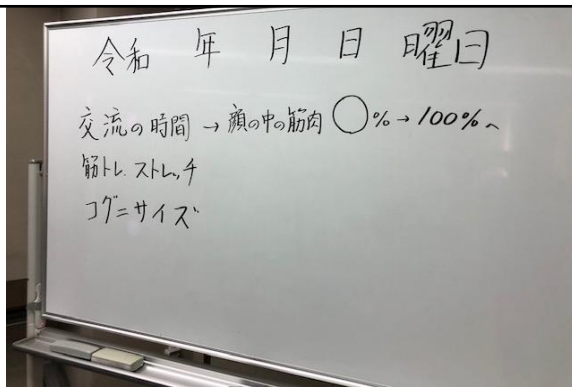 令和 年 月 日 曜日
交流の時間 → 顔の中の筋肉 ◯% → 100%へ
筋トレ.ストレッチ
コグニサイズ